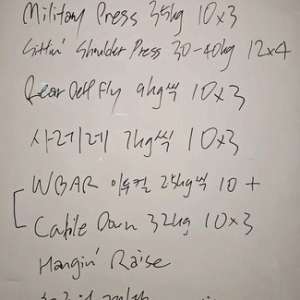 Military Press 35kg 10x3
Sittin' Shoulder Press 30-40kg 12x4
Rear Delt Fly 9kg씩 10x3
사레레 7kg씩 10x3
WBAR 이두컬 25kg씩 10 +
Cable Down 32kg 10x3
Hangin' Raise